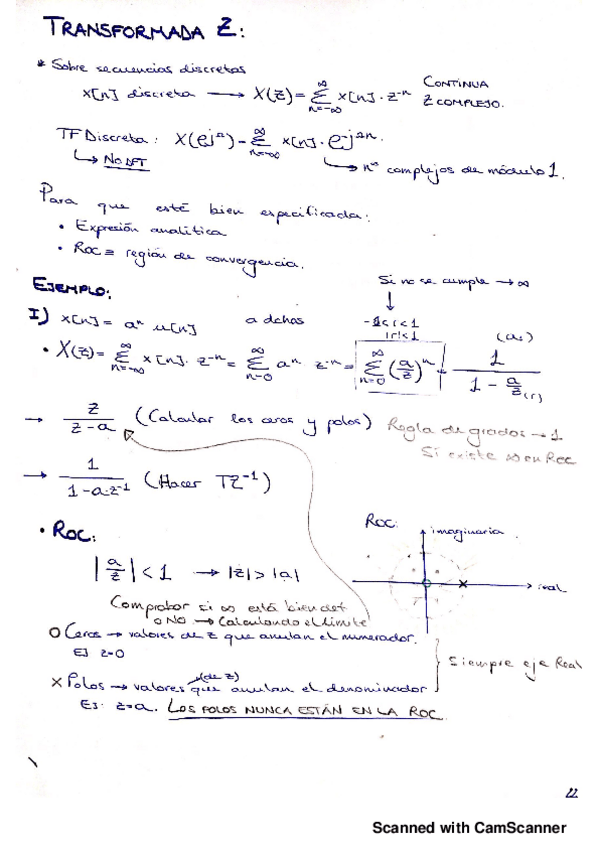 TRANSFORMADA Z:
* Sobre secuencias discretas
x[n] discreta → X(z) = ∑_{n=-∞}^{∞} x[n] · z^{-n} CONTINUA Z COMPLEJO.
TF Discreta: X(e^{jΩ}) = ∑_{n=-∞}^{∞} x[n] · e^{-jΩn}.
↳ No DFT ↳ nº complejos de módulo 1.
Para que esté bien especificada:
• Expresión analítica
• Roc ≡ región de convergencia.
EJEMPLO:
Si no se cumple → ∞
↓
I) x[n] = aⁿ u[n] a dchas
-1<r<1
|r|<1
• X(z) = ∑_{n=-∞}^{∞} x[n] · z^{-n} = ∑_{n=0}^{∞} aⁿ z^{-n} = ∑_{n=0}^{∞} (a/z)ⁿ = 1 / (1 - a/z) (a₁) (r)
→ z / (z - a) (Calcular los ceros y polos) Regla de grados → 1
Si existe ∞ en Roc
→ 1 / (1 - a·z⁻¹) (Hacer TZ⁻¹)
• Roc:
Roc:
imaginaria
real
|a/z| < 1 → |z| > |a|
Comprobar si ∞ está bien def
o NO → Calculando el límite
O Ceros → valores de z que anulan el numerador.
EJ z=0
Siempre eje Real
(de z)
X Polos → valores que anulan el denominador
EJ: z=a. LOS POLOS NUNCA ESTÁN EN LA ROC
22
Scanned with CamScanner